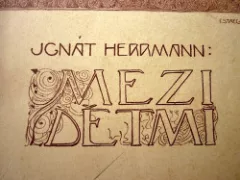 JGNÁT HERRMANN:
MEZI
DĚTMI